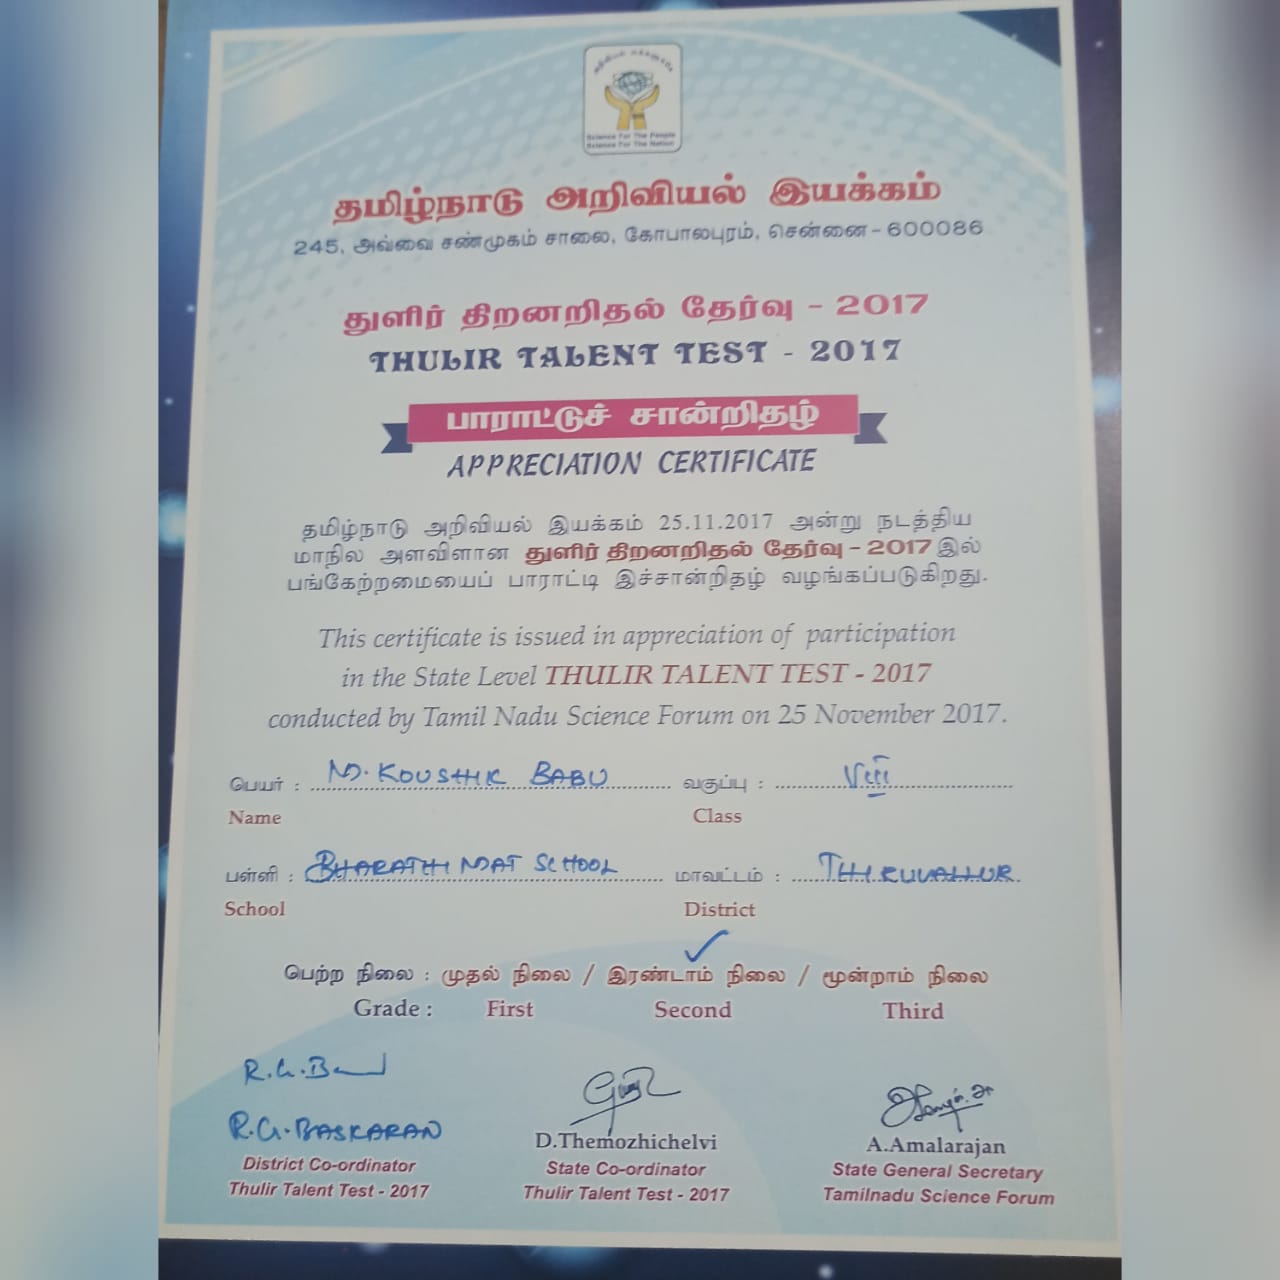 அறிவியல் மக்களுக்கே
Science For The People
Science For The Nation
தமிழ்நாடு அறிவியல் இயக்கம்
245, அவ்வை சண்முகம் சாலை, கோபாலபுரம், சென்னை - 600086
துளிர் திறனறிதல் தேர்வு - 2017
THULIR TALENT TEST - 2017
பாராட்டுச் சான்றிதழ்
APPRECIATION CERTIFICATE
தமிழ்நாடு அறிவியல் இயக்கம் 25.11.2017 அன்று நடத்திய
மாநில அளவிளான துளிர் திறனறிதல் தேர்வு - 2017 இல்
பங்கேற்றமையைப் பாராட்டி இச்சான்றிதழ் வழங்கப்படுகிறது.
This certificate is issued in appreciation of participation
in the State Level THULIR TALENT TEST - 2017
conducted by Tamil Nadu Science Forum on 25 November 2017.
பெயர் : M. KOUSHIK BABU வகுப்பு : VIII
Name Class
பள்ளி : BHARATH MAT SCHOOL மாவட்டம் : THIRUVALLUR
School District
பெற்ற நிலை : முதல் நிலை / இரண்டாம் நிலை / மூன்றாம் நிலை
Grade : First Second Third
R.G.B
R.G. BASKARAN D.Themozhichelvi A.Amalarajan
District Co-ordinator State Co-ordinator State General Secretary
Thulir Talent Test - 2017 Thulir Talent Test - 2017 Tamilnadu Science Forum